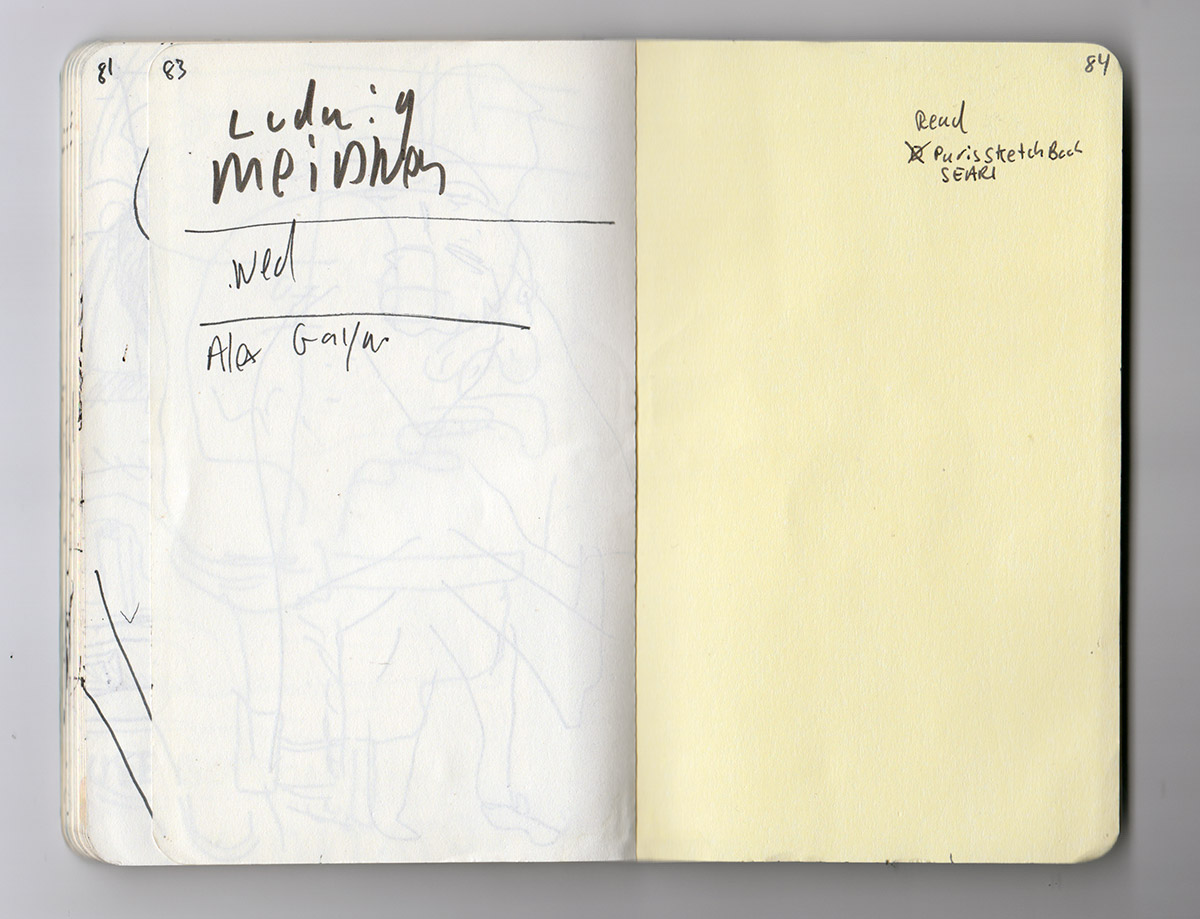 81
83
Ludwig
Meidner
Wed
Alex
84
Read
Paris Sketch Book
SEARL